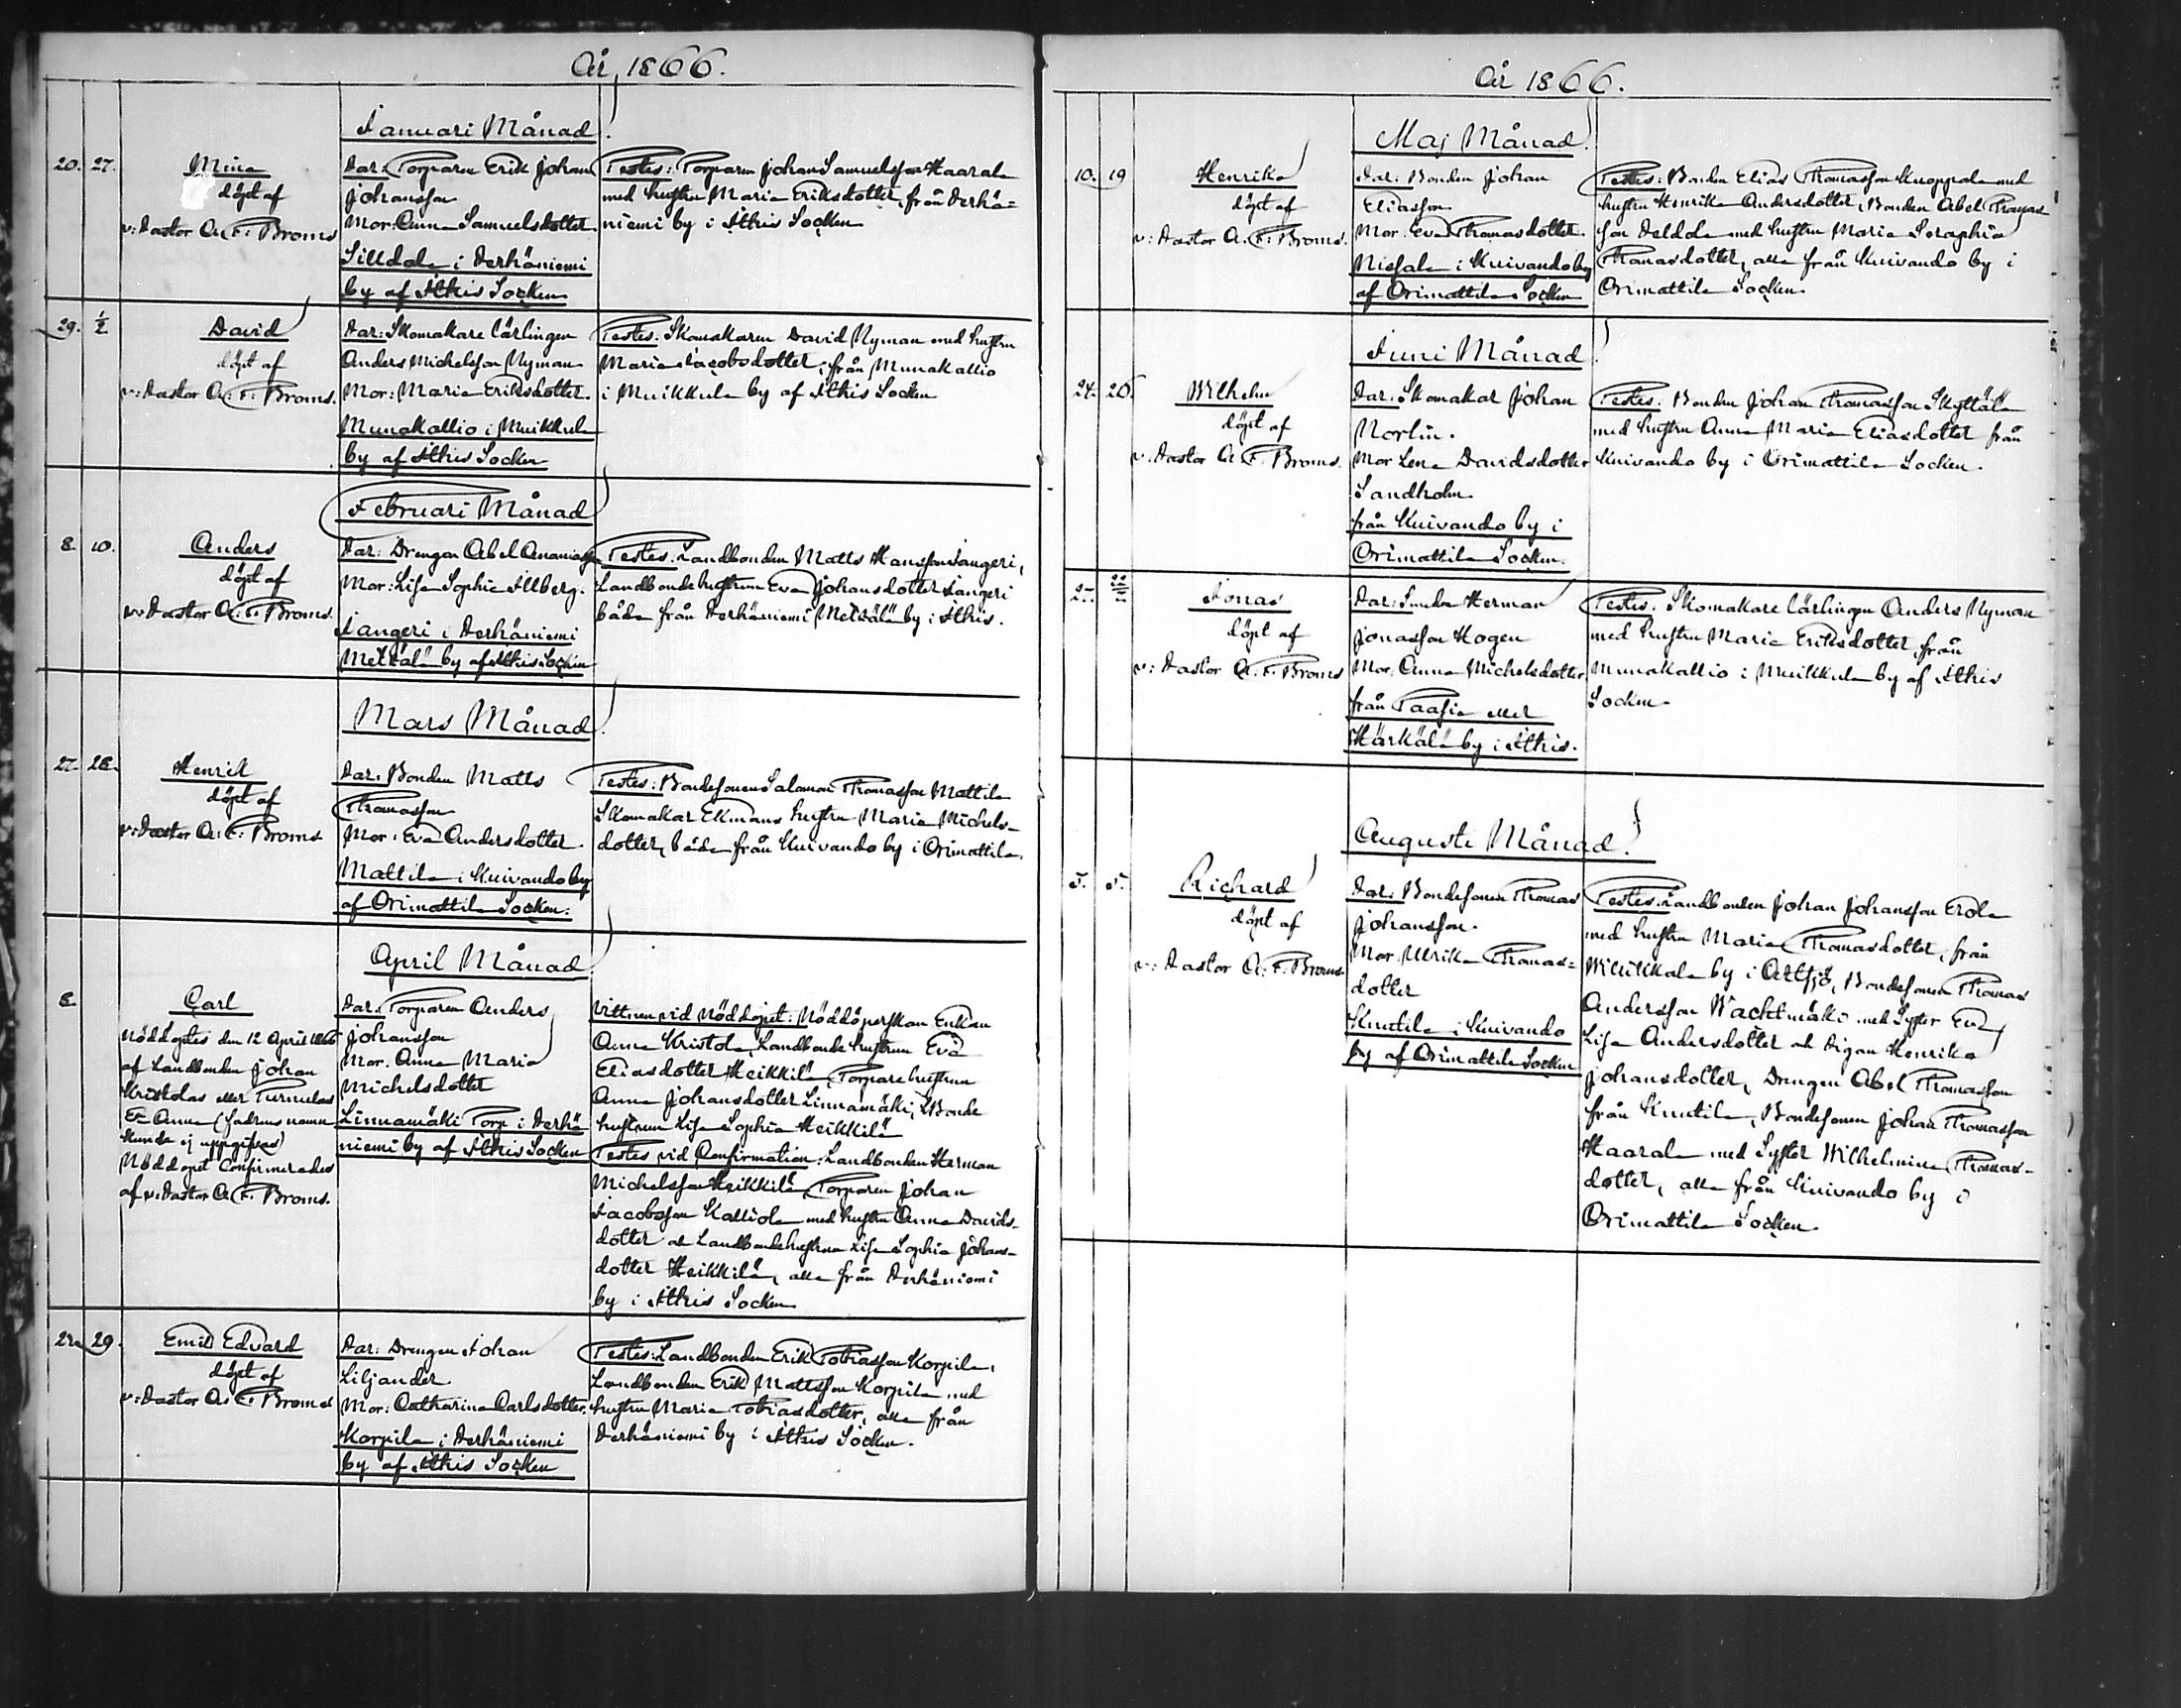 År 1866.
Januari Månad.
20. 27.
Mina
döpt af
v: Pastor A. F. Broms
Far: Torparn Erik Johan
Johansson
Mor: Anna Samuelsdotter.
Silldala i Perhäniemi
by af Ithis Socken
Testes: Torparn Johan Samuelsson Haarala
med hustru Maria Eriksdotter, från Perhä=
niemi by i Ithis Socken
29. 1/2
David
döpt af
v: Pastor A: F: Broms.
Far: Skomakare lärlingen
Anders Michelsson Nyman
Mor: Maria Eriksdotter.
Munakallio i Muikkula
by af Ithis Socken
Testes: Skomakaren David Nyman med hustru
Maria Jacobsdotter, från Munakallio
i Muikkula by af Ithis Socken
Februari Månad
8. 10.
Anders
döpt af
v: Pastor A: F: Broms.
Far: Drengen Abel Ananiasson
Mor: Lisa Sophia Allberg.
Jangeri i Perhäniemi
Metkälä by af Ithis Socken
Testes: Landbonden Matts Hansson Jangeri,
Landbondehustrun Eva Johansdotter Jangeri
båda från Perhäniemi Metkälä by i Ithis.
Mars Månad.
27. 28.
Henrik
döpt af
v: Pastor A: F: Broms
Far: Bonden Matts
Thomasson
Mor: Eva Andersdotter.
Mattila i Kuivando by
af Orimattila Socken:
Testes: Bondesonen Salomon Thomasson Mattila
Skomakar Ekmans hustru Maria Michels-
dotter, båda från Kuivando by i Orimattila.
April Månad
8
Carl
Nöddöptes den 12 April 1866
af Landbonden Johan
Kristolas eller Turmulas
E: Anna (fadrens namn
kunde ej uppgifvas)
Nöddopet Confirmerades
af v: Pastor A. F. Broms.
Far: Torparen Anders
Johansson
Mor: Anna Maria
Michelsdotter
Linnamäki Torp i Perhä
niemi by af Ithis Socken
Vittnen vid Nöddopet: Nöddöperskan Enkan
Anna Kristola, Landbonde hustrun Eva
Eliasdotter Heikkilä, Torpare hustrun
Anna Johansdotter Linnamäki, LBonde
hustrun Lisa Sophia Heikkilä
Testes vid Confirmation: Landbonden Herman
Michelsson Heikkilä, Torparen Johan
Jacobsson Kalliola med hustru Anna Davids-
dotter och Landbondehustrun Lisa Sophia Johans-
dotter Heikkilä, alla från Perhäniemi
by i Ithis Socken
29.
Emil Edvard
döpt af
v: Pastor A: F: Broms
Far: Drengen Johan
Liljander
Mor: Catharina Carlsdotter.
Korpila i Perhäniemi
by af Ithis Socken
Testes: Landbonden Erik Tobiasson Korpila,
Landbonden Erik Mattsson Korpila med
hustru Maria Tobiasdotter, alla från
Perhäniemi by i Ithis Socken.
År 1866.
Maj Månad.
10. 19
Henrika
döpt af
v: Pastor A. F: Broms.
Far: Bonden Johan
Eliasson
Mor: Eva Thomasdotter.
Nissala i Kuivando by
af Orimattila Socken
Testes: Bonden Elias Thomasson Knoppala med
hustru Henrika Andersdotter, Bonden Abel Thomas
son Peldola med hustru Maria Seraphia
Thomasdotter, alla från Kuivando by i
Orimattila Socken.
Juni Månad
24. 26.
Wilhelm
döpt af
v. Pastor A. F. Broms.
Far: Skomakar Johan
Norlin.
Mor Lena Davidsdotter
Sandholm.
från Kuivando by i
Orimattila Socken.
Testes: Bonden Johan Thomasson Skyttälä
med hustru Anna Maria Eliasdotter från
Kuivando by i Orimattila Socken.
Jonas
döpt af
v: Pastor A. F. Broms
Far: Herman
Jonasson Hogen
Mor: Anna Michelsdotter
från Paasia eller
Härkälä by i Ithis.
Testes: Skomakare lärlingen Anders Nyman
med hustru Maria Eriksdotter, från
Munakallio i Muikkula by af Ithis
Socken
Augusti Månad.
5. 5.
Richard
döpt af
v: Pastor A: F. Broms
Far: Bondesonen Thomas
Johansson.
Mor. Ulrika Thomas=
dotter
Knutila i Kuivando
by af Orimattila Socken
Testes: Landbonden Johan Johansson Erola
med hustru Maria Thomasdotter, från
Willikkala by i Artsjö, Bondesonen Thomas
Andersson Wachtmäki med Syster Eva
Lisa Andersdotter och Pigan Henrika
Johansdotter, Drengen Abel Thomasson
från Knutila, Bondesonen Johan Thomasson
Haarala med Syster Wilhelmina Thomas-
dotter, alla från Kuivando by i
Orimattila Socken.